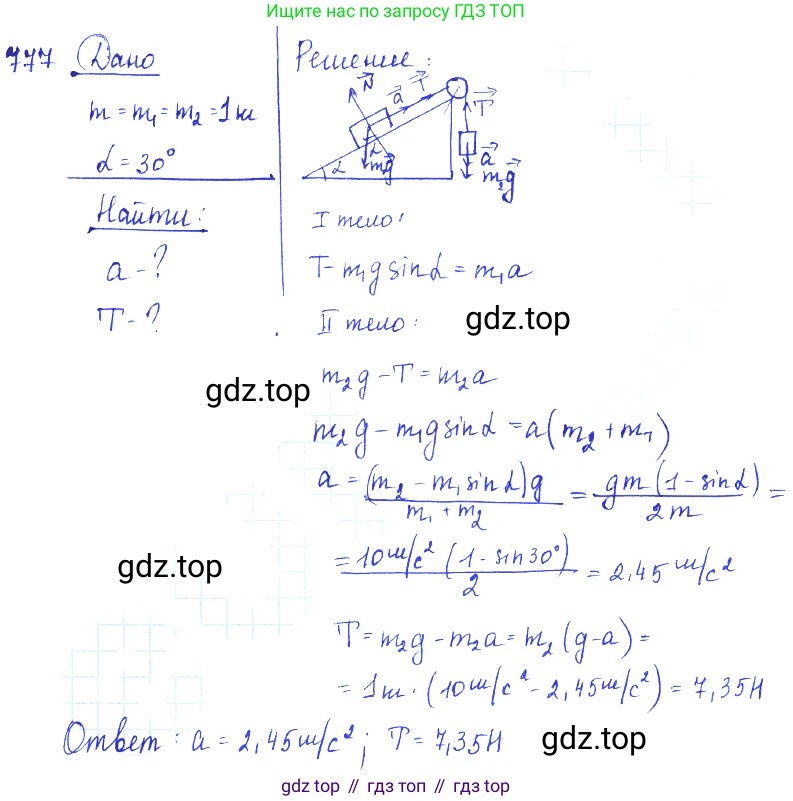 Ищите нас по запросу ГДЗ ТОП
777 Дано
m = m₁ = m₂ = 1кг
α = 30°
Найти:
a - ?
T - ?
Решение:
N
a
T
T
α
α
mg
a
m₂g
I тело:
T - m₁g sinα = m₁a
II тело:
gdz.top
m₂g - T = m₂a
gdz.top
m₂g - m₁g sinα = a(m₂ + m₁)
a = (m₂ - m₁ sinα)g / m₁ + m₂ = gm(1 - sinα) / 2m =
= 10м/с² (1 - sin30°) / 2 = 2,45 м/с²
gdz.top
T = m₂g - m₂a = m₂(g - a) =
= 1кг · (10м/с² - 2,45м/с²) = 7,35Н
Ответ: a = 2,45м/с²; T = 7,35Н
gdz.top
gdz top // гдз топ // gdz top